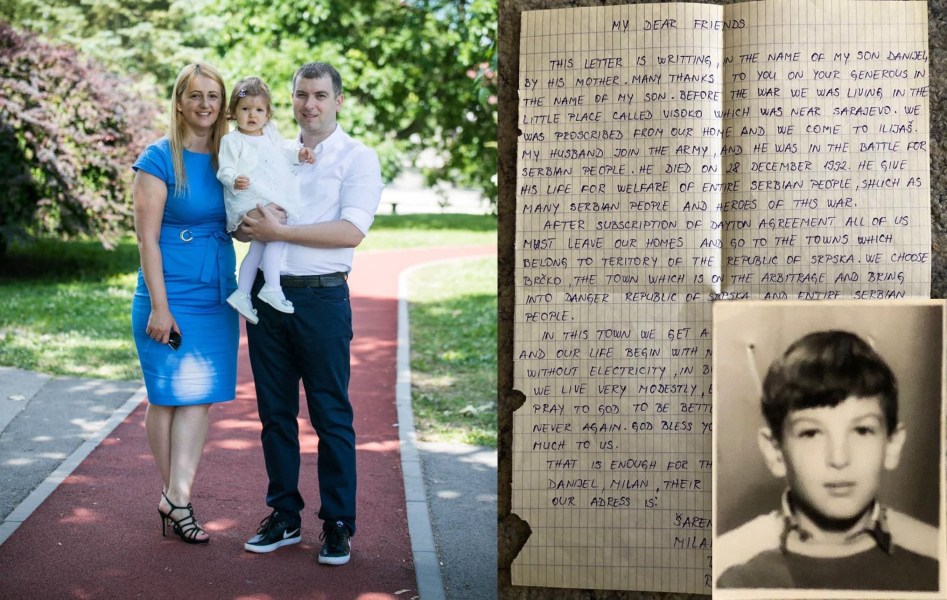 MY DEAR FRIENDS
THIS LEITER IS WRITTING, IN THE NAME OF MY SON DANIJEL,
BY HIS MOTHER. MANY THANKS TO YOU ON YOUR GENEROUS IN
THE NAME OF MY SON. BEFORE THE WAR WE WAS LIVING IN
LITTLE PLACE CALLED VISOKO WHICH WAS NEAR SARAJEVO. WE
WAS PROSCRIBED FROM OUR HOME AND WE COME TO ILIJAŠ.
MY HUSBAND JOIN THE ARMY, AND HE WAS IN THE BATTLE FOR
SERBIAN PEOPLE. HE DIED ON 28 DECEMBER 1992. HE GIVE
HIS LIFE FOR WELFARE OF ENTIRE SERBIAN PEOPLE, SHUCH AS
MANY SERBIAN PEOPLE AND HEROES OF THIS WAR.
AFTER SUBSCRIPTION OF DAYTON AGREEMENT ALL OF US
MUST LEAVE OUR HOMES AND GO TO THE TOWNS WHICH
BELONG TO TERITORY OF THE REPUBLIC OF SRPSKA. WE CHOOSE
BRČKO, THE TOWN WHICH IS ON THE ARBITRAGE AND BRING
INTO DANGER REPUBLIC OF SRPSKA AND ENTIRE SERBIAN
PEOPLE.
IN THIS TOWN WE GET A
AND OUR LIFE BEGIN WITH
WITHOUT ELECTRICITY, IN
WE LIVE VERY MODESTLY,
PRAY TO GOD TO BE BETTE
NEVER AGAIN. GOD BLESS YO
MUCH TO US.
THAT IS ENOUGH FOR TH
DANIJEL, MILAN, THEIR
OUR ADRESS IS:
ŠAREN
MILA